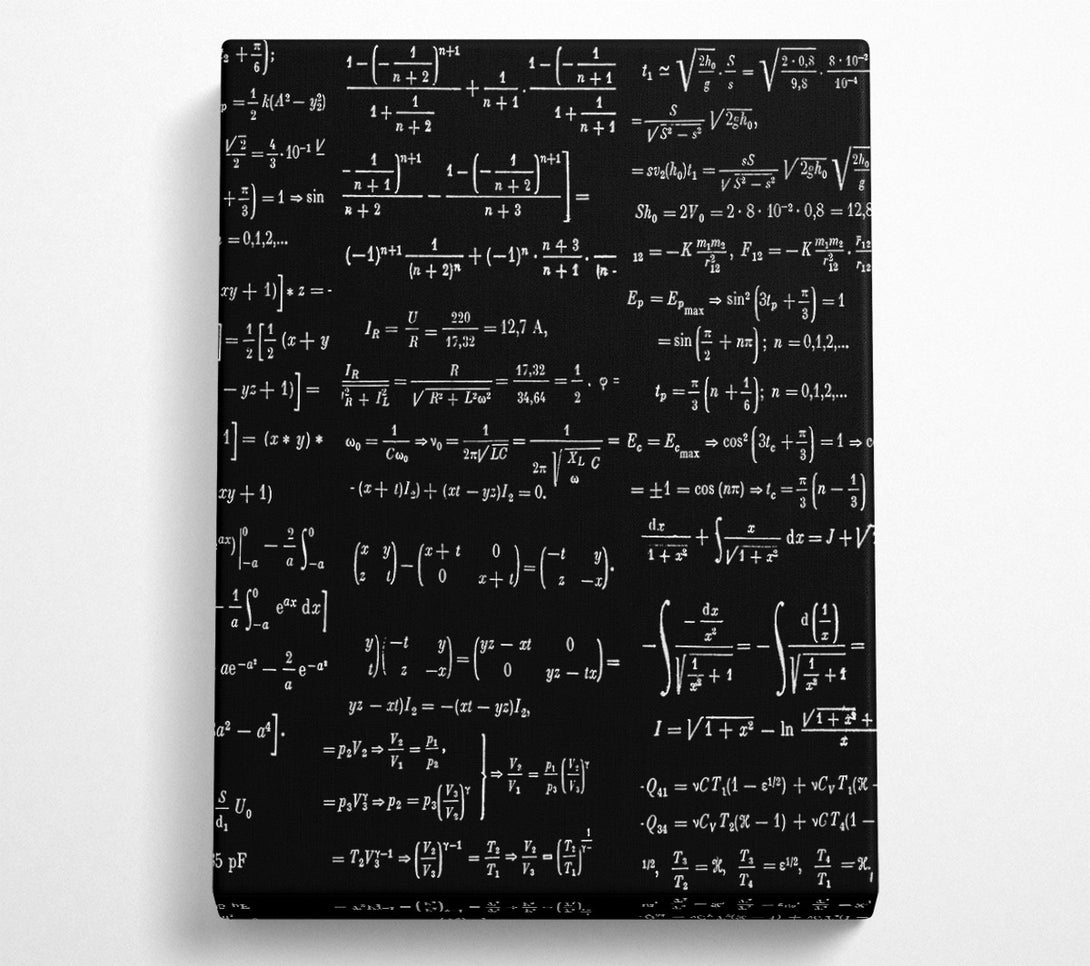 ₂ + π/6);
p = 1/2 k(A² − y₂²)
√2/2 = 4/3 · 10⁻¹ V
+ π/3) = 1 ⇒ sin
= 0,1,2,...
xy + 1)] * z = -
] = 1/2[1/2 (x + y
− yz + 1)] =
1] = (x * y) *
xy + 1)
ax)|⁰₋ₐ − 2/a ∫⁰₋ₐ
- 1/a ∫⁰₋ₐ e^(ax) dx]
ae^(-a²) − 2/a e^(-a²)
a² − a⁴].
S/d₁ U₀
5 pF
(1 − (−1/(n + 2))^(n+1))/(1 + 1/(n + 2)) + 1/(n + 1) · (1 − (−1/(n + 1)/(1 + 1/(n + 1
(−1/(n + 1))^(n+1)/(n + 2) − (1 − (−1/(n + 2))^(n+1))/(n + 3)] =
(−1)^(n+1) 1/(n + 2)ⁿ + (−1)ⁿ · (n + 3)/(n + 1) · /(n -
I_R = U/R = 220/17,32 = 12,7 A,
I_R/√(I²_R + I²_L) = R/√(R² + L²ω²) = 17,32/34,64 = 1/2 . φ =
ω₀ = 1/(Cω₀) ⇒ ν₀ = 1/(2π√(LC)) = 1/(2π√(X_L C/ω)) =
- (x + t)I₂) + (xt − yz)I₂ = 0.
(x y; z t) − (x + t 0; 0 x + t) = (−t y; z −x).
y; t)(−t y; z −x) = (yz − xt 0; 0 yz − tx) =
yz − xt)I₂ = −(xt − yz)I₂,
= p₂V₂ ⇒ V₂/V₁ = p₁/p₂,
= p₃V₃^γ ⇒ p₂ = p₃(V₃/V₂)^γ } ⇒ V₂/V₁ = p₁/p₃(V₂/V₃)^γ
= T₂V₃^(γ−1) ⇒ (V₂/V₃)^(γ−1) = T₂/T₁ ⇒ V₂/V₃ = (T₂/T₁)^(1/γ−
t₁ ≃ √(2h₀/g) · S/s = √(2 · 0,8/9,8) · 8 · 10⁻²/10⁻⁴
= S/√(S² − s²) √(2gh₀),
= sv₂(h₀)t₁ = sS/√(S² − s²) √(2gh₀) √(2h₀/g
Sh₀ = 2V₀ = 2 · 8 · 10⁻² · 0,8 = 12,8
₁₂ = −K m₁m₂/r²₁₂, F₁₂ = −K m₁m₂/r²₁₂ · r̄₁₂/r₁₂
E_p = E_pmax ⇒ sin²(3t_p + π/3) = 1
= sin(π/2 + nπ); n = 0,1,2,...
t_p = π/3(n + 1/6); n = 0,1,2,...
E_c = E_cmax ⇒ cos²(3t_c + π/3) = 1 ⇒ c
= ±1 = cos (nπ) ⇒ t_c = π/3(n − 1/3)
dx/(1 + x²) + ∫ x/√(1 + x²) dx = J + √
−∫ (−dx/x²)/√(1/x² + 1) = −∫ d(1/x)/√(1/x² + 1) =
I = √(1 + x²) − ln (√(1 + x²) +)/x
-Q₄₁ = νCT₁(1 − ε^(1/2)) + νC_V T₁(ℋ −
-Q₃₄ = νC_V T₂(ℋ − 1) + νCT₄(1 −
^(1/2), T₃/T₂ = ℋ, T₃/T₄ = ε^(1/2), T₄/T₁ = ℋ,